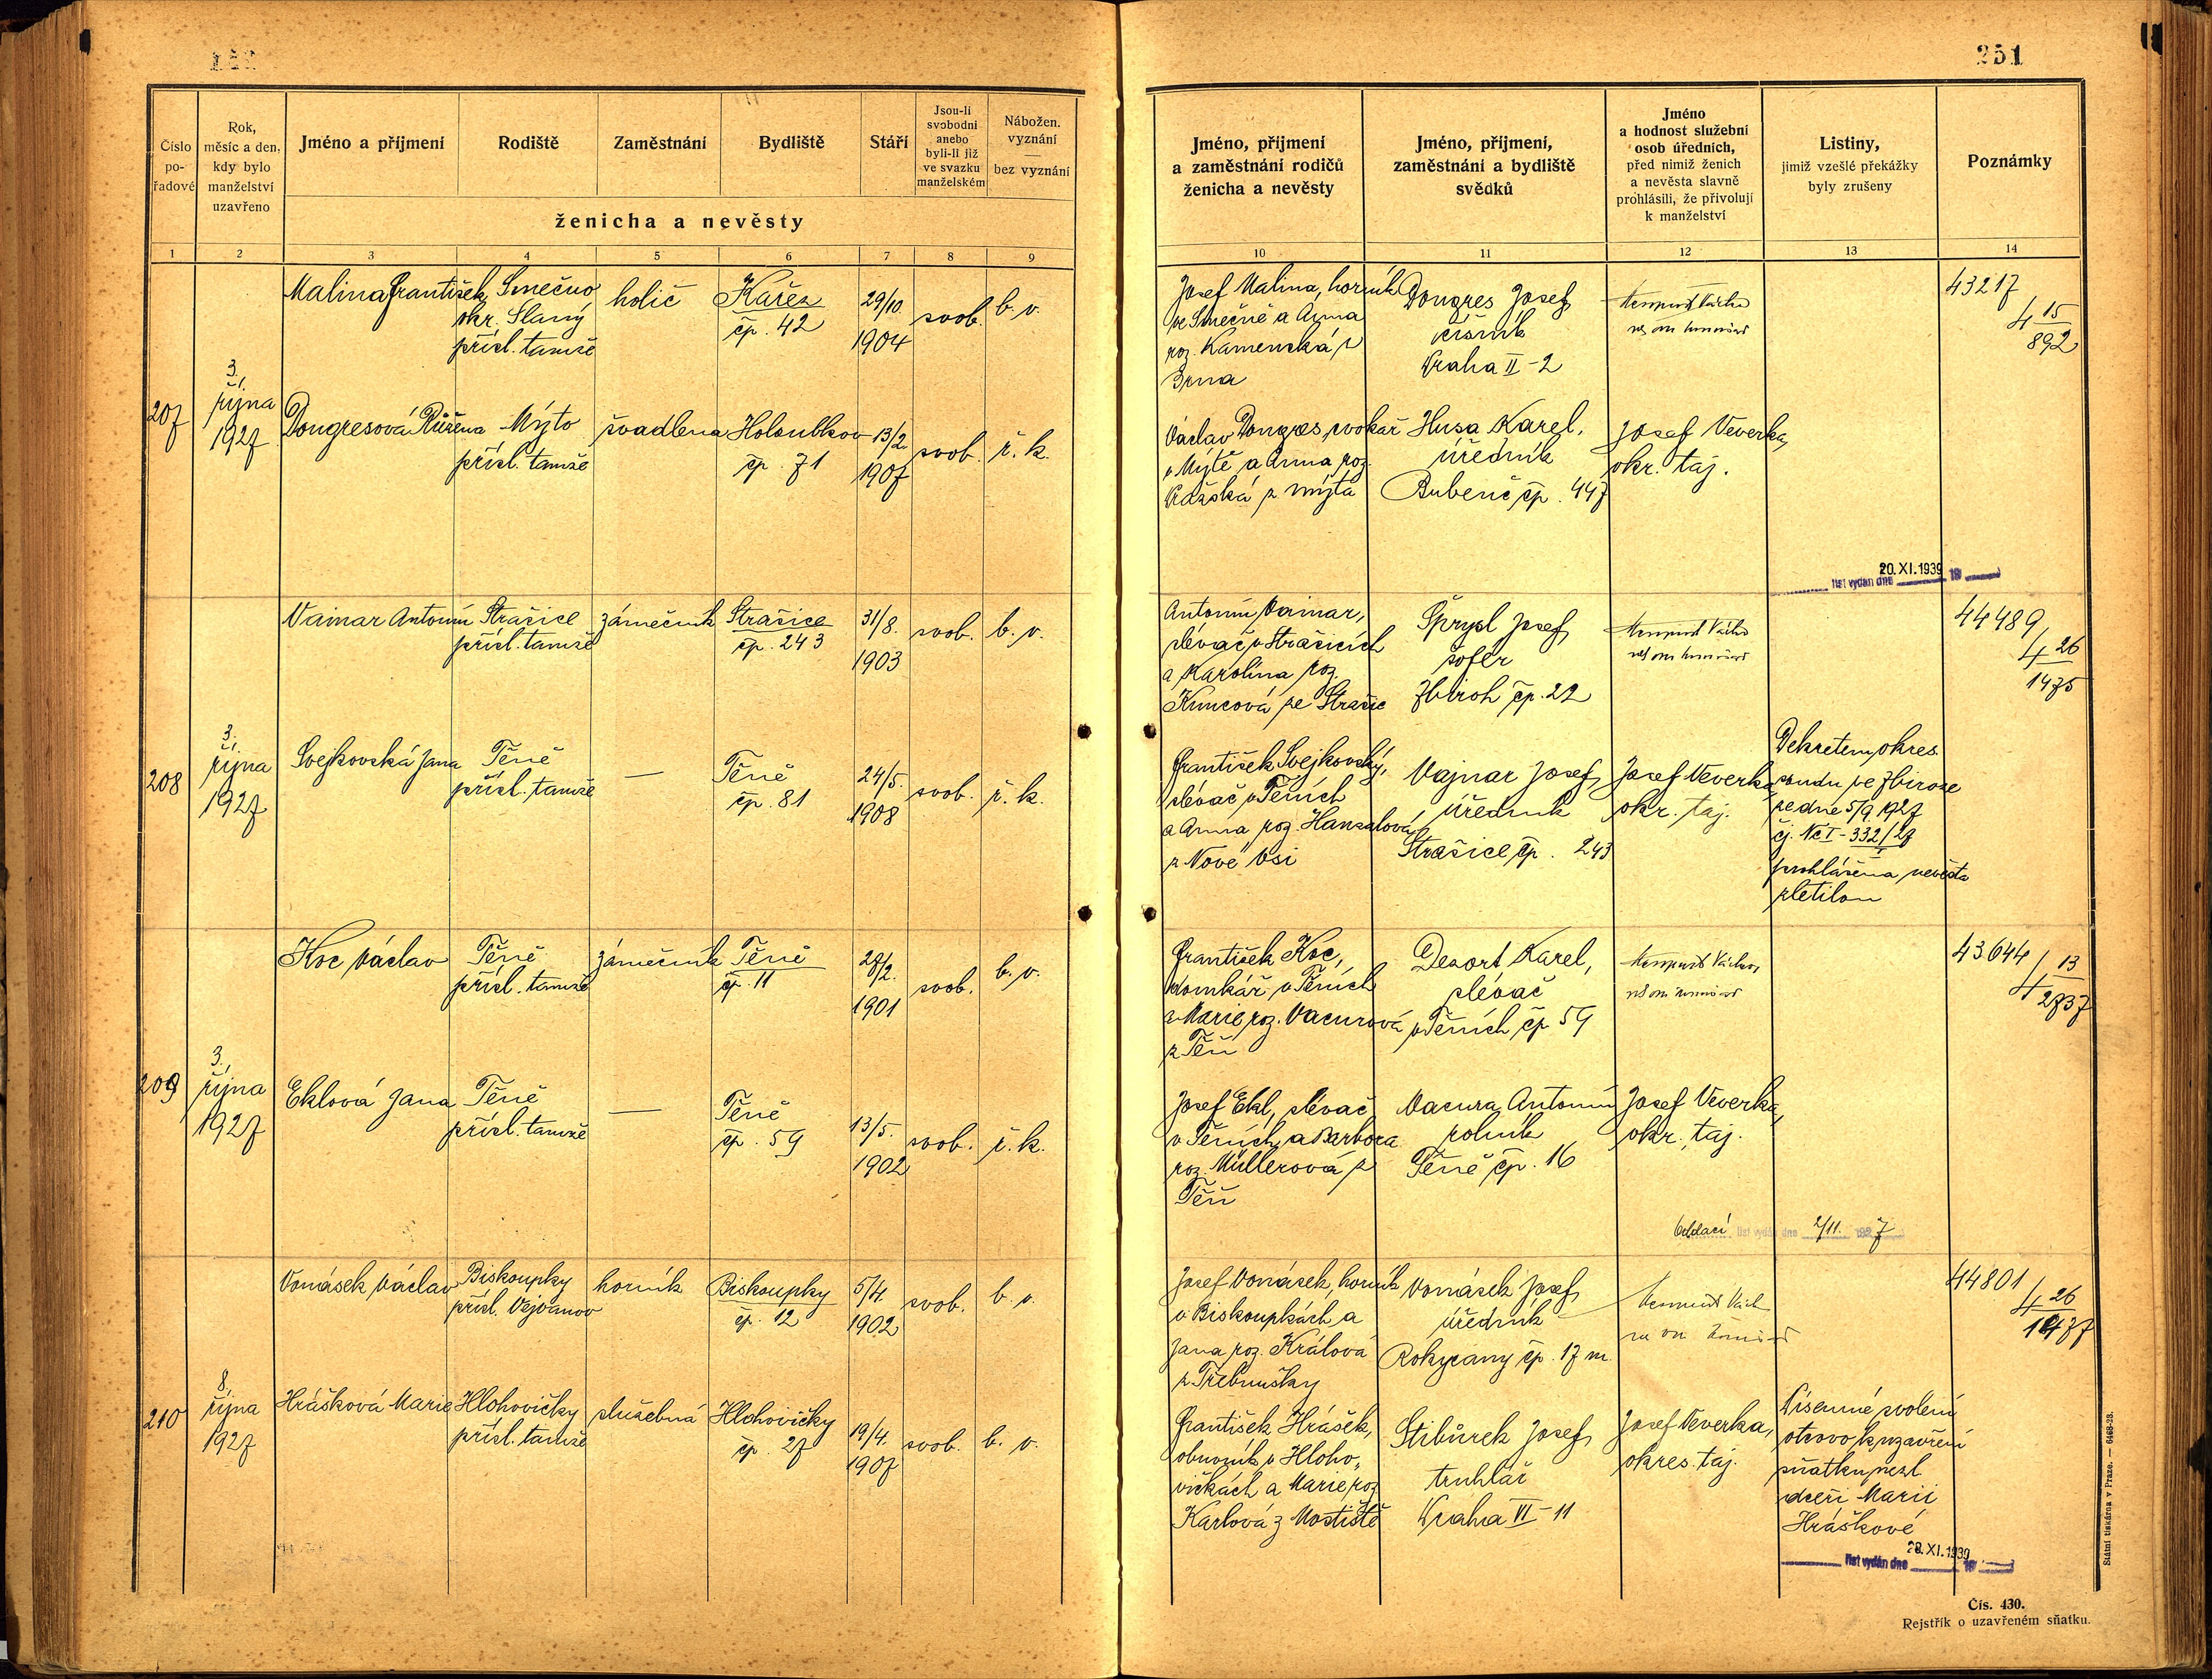 251
Číslo po-řadové
Rok, měsíc a den, kdy bylo manželství uzavřeno
Jméno a příjmení
Rodiště
Zaměstnání
Bydliště
Stáří
Jsou-li svobodni anebo byli-li již ve svazku manželském
Nábožen. vyznání — bez vyznání
ženicha a nevěsty
Jméno, příjmení a zaměstnání rodičů ženicha a nevěsty
Jméno, příjmení, zaměstnání a bydliště svědků
Jméno a hodnost služební osob úředních, před nimiž ženich a nevěsta slavně prohlásili, že přivolují k manželství
Listiny, jimiž vzešlé překážky byly zrušeny
Poznámky
1 2 3 4 5 6 7 8 9 10 11 12 13 14
207
3. října 1927
Malina František
Smečno
okr. Slaný
přísl. tamže
holič
Kařez
čp. 42
29/10.
1904
svob.
b. v.
Josef Malina, horník
ve Smečně a Anna
roz. Kamenská z
Brna
Dongres Josef
číšník
Praha II-2
43217
4 15
892
Dongresová Růžena
Mýto
přísl. tamže
švadlena
Holoubkov
čp. 71
13/2.
1907
svob.
ř. k.
Václav Dongres, cvokař
v Mýtě a Anna roz.
Pražská z Mýta
Husa Karel,
úředník
Bubeneč čp. 447
Josef Veverka,
okr. taj.
20. XI. 1939
list vydán dne 19
208
3. října 1927
Vainar Antonín
Strašice
přísl. tamže
zámečník
Strašice
čp. 243
31/8.
1903
svob.
b. v.
Antonín Vainar,
slévač v Strašicích
a Karolina roz.
Kuncová ze Strašic
Šprysl Josef
šofér
Zbiroh čp. 22
44489
4 26
1475
Svejkovská Jana
Těně
přísl. tamže
—
Těně
čp. 81
24/5.
1908
svob.
ř. k.
František Svejkovský,
slévač v Těních
a Anna roz. Hanzalová
z Nové Vsi
Vajnar Josef
úředník
Strašice čp. 243
Josef Veverka,
okr. taj.
Dekretem okres.
soudu ve Zbiroze
ze dne 5/9 1927
čj. Nc I-332/27
prohlášena nevěsta
zletilou
209
3. října 1927
Koc Václav
Těně
přísl. tamže
zámečník
Těně
čp. 11
28/2.
1901
svob.
b. v.
František Koc,
domkář v Těních
a Marie roz. Vacurová
z Těň
Dezort Karel,
slévač
v Těních čp 59
43644
4 13
2737
Eklová Jana
Těně
přísl. tamže
—
Těně
čp. 59
13/5.
1902
svob.
ř. k.
Josef Ekl, slévač
v Těních a Barbora
roz. Müllerová z
Těň
Vacura Antonín
rolník
Těně čp. 16
Josef Veverka,
okr. taj.
Oddací list vydán dne 2/11. 1927
210
8. října 1927
Vonásek Václav
Biskoupky
přísl. Vejvanov
horník
Biskoupky
čp. 12
5/4.
1902
svob.
b. v.
Josef Vonásek, horník
v Biskoupkách a
Jana roz. Králová
z Třebnušky
Vonásek Josef
úředník
Rokycany čp. 17 m.
44801
4 26
1477
Hrášková Marie
Hlohovičky
přísl. tamže
služebná
Hlohovičky
čp. 27
19/4.
1907
svob.
b. v.
František Hrášek,
obuvník v Hloho-
vičkách a Marie roz.
Karlová z Mostiště
Stibůrek Josef
truhlář
Praha VI-11
Josef Veverka,
okres. taj.
Písemné svolení
otcovo k uzavření
sňatku nezl.
dceři Marii
Hráškové
28. XI. 1939
list vydán dne 19
Státní tiskárna v Praze. — 6468-23.
Čís. 430.
Rejstřík o uzavřeném sňatku.